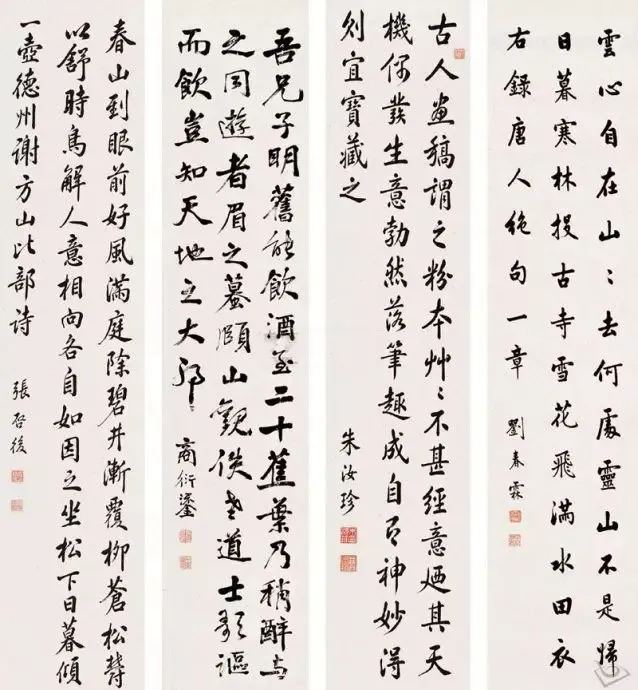 雲心自在山〻去何處靈山不是歸
日暮寒林投古寺雪花飛滿水田衣
右錄唐人絕句一章
劉春霖
古人畫稿謂之粉本艸〻不甚經意廼其天
機偶發生意勃然落筆趣成自有神妙得
則宜寶藏之
朱汝珍
吾兄子明舊能飲酒至二十蕉葉乃稍醉與
之同遊者眉之蟇頤山觀佚老道士歌謳
而飲豈知天地之大邪
商衍鎏
春山到眼前好風滿庭除碧井漸覆柳蒼松聲
以舒時鳥解人意相向各自如因之坐松下日暮傾
一壺德州謝方山比部詩
張啓後